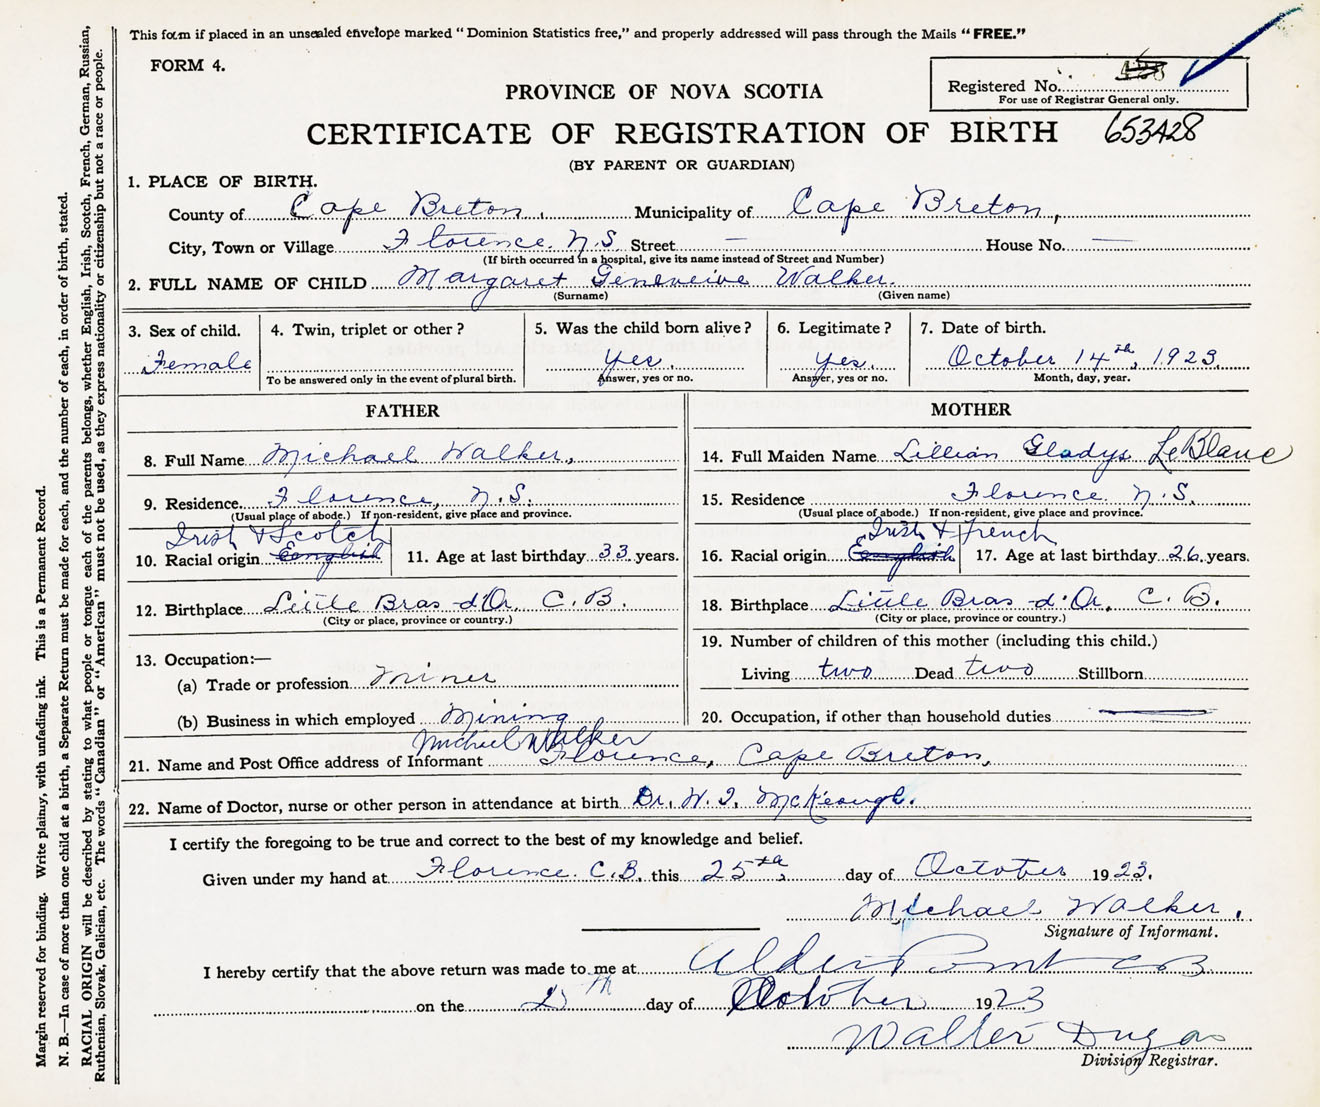 This form if placed in an unsealed envelope marked "Dominion Statistics free," and properly addressed will pass through the Mails "FREE."
FORM 4.
Registered No.
For use of Registrar General only.
PROVINCE OF NOVA SCOTIA
CERTIFICATE OF REGISTRATION OF BIRTH 653428
(BY PARENT OR GUARDIAN)
1. PLACE OF BIRTH.
County of Cape Breton, Municipality of Cape Breton,
City, Town or Village Florence. N.S. Street — House No. —
(If birth occurred in a hospital, give its name instead of Street and Number)
2. FULL NAME OF CHILD Margaret Geneveive Walker.
(Surname) (Given name)
3. Sex of child. 4. Twin, triplet or other? 5. Was the child born alive? 6. Legitimate? 7. Date of birth.
Female yes. yes. October 14th, 1923.
To be answered only in the event of plural birth. Answer, yes or no. Answer, yes or no. Month, day, year.
FATHER
8. Full Name Michael Walker,
9. Residence Florence, N.S.
(Usual place of abode.) If non-resident, give place and province.
Irish & Scotch
10. Racial origin English 11. Age at last birthday 33 years.
12. Birthplace Little Bras-d'Or, C.B.
(City or place, province or country.)
13. Occupation:—
(a) Trade or profession Miner
(b) Business in which employed Mining
MOTHER
14. Full Maiden Name Lillian Gladys LeBlanc
15. Residence Florence N.S.
(Usual place of abode.) If non-resident, give place and province.
Irish & French
16. Racial origin English 17. Age at last birthday 26 years.
18. Birthplace Little Bras-d'Or, C.B.
(City or place, province or country.)
19. Number of children of this mother (including this child.)
Living two Dead two Stillborn
20. Occupation, if other than household duties —
Michael Walker
21. Name and Post Office address of Informant Florence, Cape Breton,
22. Name of Doctor, nurse or other person in attendance at birth Dr. W. J. McKeough.
I certify the foregoing to be true and correct to the best of my knowledge and belief.
Given under my hand at Florence. C.B. this 25th, day of October 1923.
Michael Walker.
Signature of Informant.
I hereby certify that the above return was made to me at Alder Point CB
on the day of October 1923
Walter Dugas
Division Registrar.
Margin reserved for binding. Write plainly, with unfading ink. This is a Permanent Record.
N. B.—In case of more than one child at a birth, a Separate Return must be made for each, and the number of each, in order of birth, stated.
RACIAL ORIGIN will be described by stating to what people or tongue each of the parents belongs, whether English, Irish, Scotch, French, German, Russian,
Ruthenian, Slovak, Galician, etc. The words "Canadian" or "American" must not be used, as they express nationality or citizenship but not a race or people.